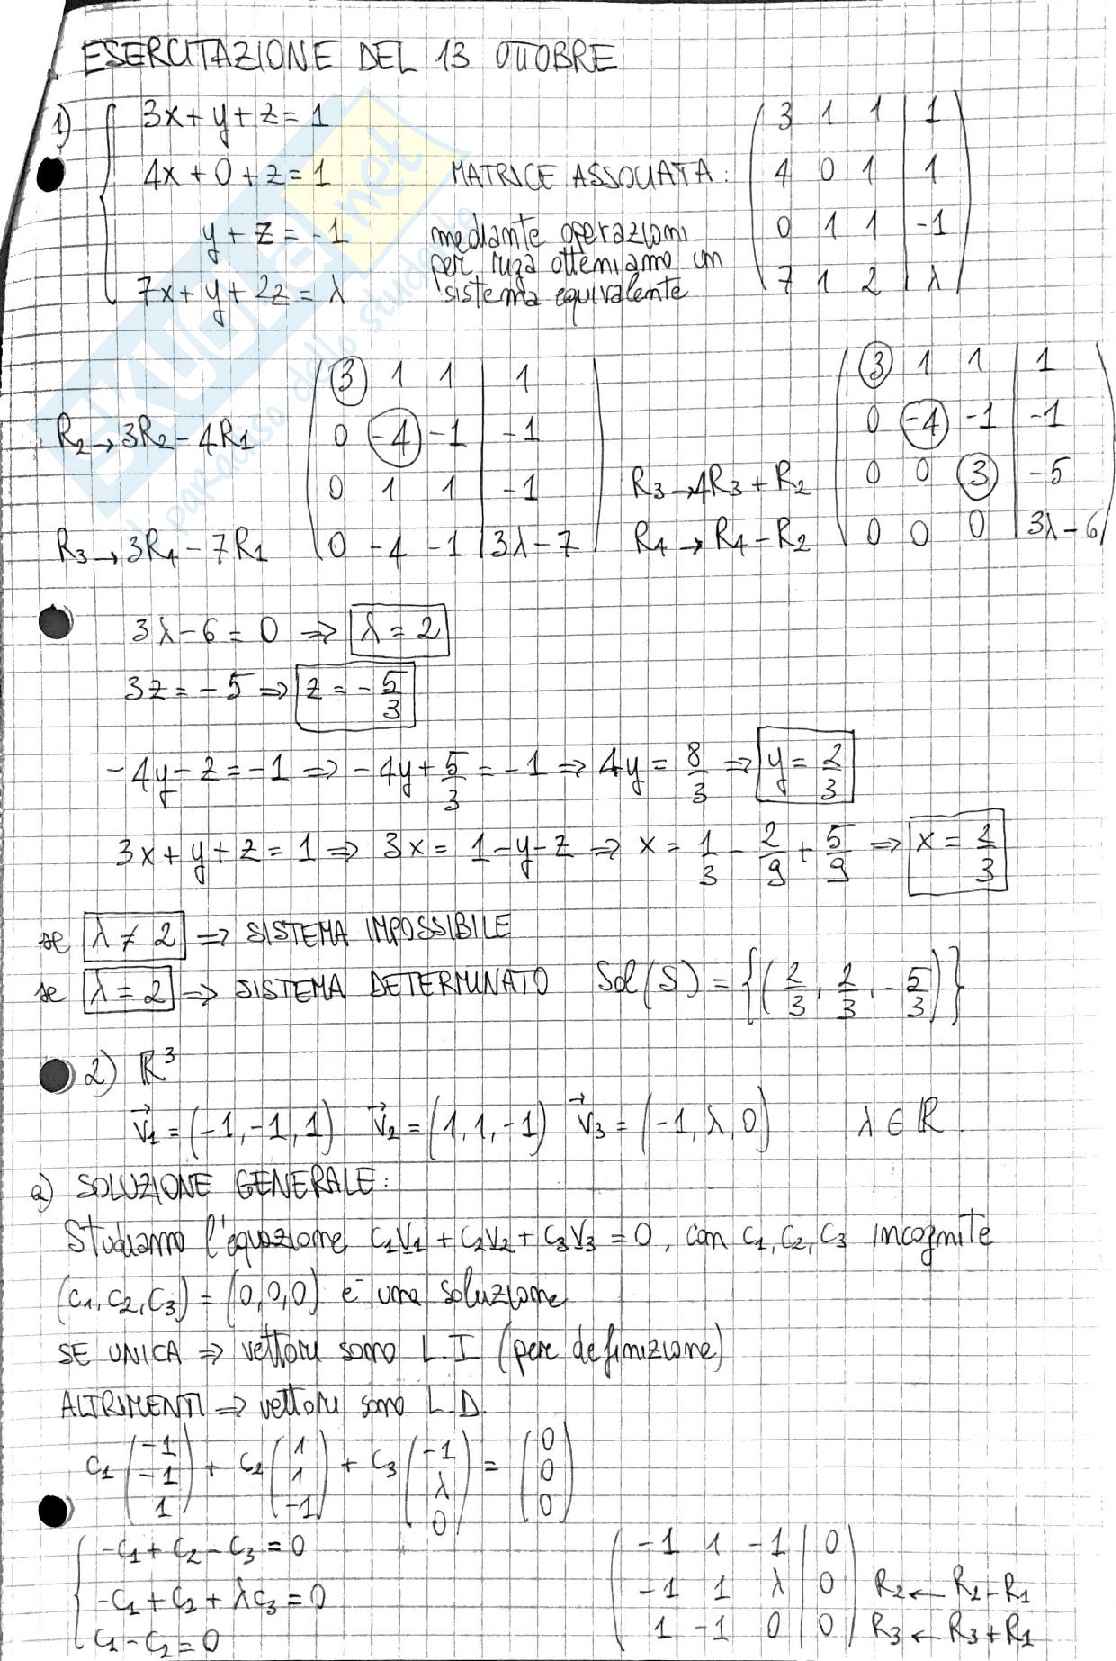 ESERCITAZIONE DEL 13 OTTOBRE
1) { 3x + y + z = 1
4x + 0 + z = 1
y + z = -1
7x + y + 2z = λ
MATRICE ASSOCIATA:
( 3 1 1 | 1 )
( 4 0 1 | 1 )
( 0 1 1 | -1 )
( 7 1 2 | λ )
mediante operazioni
per riga otteniamo un
sistema equivalente
R2 → 3R2 - 4R1
R3 → 3R4 - 7R1
( 3 1 1 | 1 )
( 0 -4 -1 | -1 )
( 0 1 1 | -1 )
( 0 -4 -1 | 3λ - 7 )
R3 → 4R3 + R2
R4 → R4 - R2
( 3 1 1 | 1 )
( 0 -4 -1 | -1 )
( 0 0 3 | -5 )
( 0 0 0 | 3λ - 6 )
3λ - 6 = 0 ⇒ λ = 2
3z = -5 ⇒ z = -5/3
-4y - z = -1 ⇒ -4y + 5/3 = -1 ⇒ 4y = 8/3 ⇒ y = 2/3
3x + y + z = 1 ⇒ 3x = 1 - y - z ⇒ x = 1/3 - 2/9 + 5/9 ⇒ x = 2/3
se λ ≠ 2 ⇒ SISTEMA IMPOSSIBILE
se λ = 2 ⇒ SISTEMA DETERMINATO Sol(S) = {(2/3, 2/3, -5/3)}
2) ℝ³
v1 = (-1, -1, 1) v2 = (1, 1, -1) v3 = (-1, λ, 0) λ ∈ ℝ.
a) SOLUZIONE GENERALE:
Studiamo l'equazione c1v1 + c2v2 + c3v3 = 0, con c1, c2, c3 incognite
(c1, c2, c3) = (0, 0, 0) è una soluzione
SE UNICA ⇒ vettori sono L.I (per definizione)
ALTRIMENTI ⇒ vettori sono L.D.
c1 (-1 -1 1) + c2 (1 1 -1) + c3 (-1 λ 0) = (0 0 0)
{ -c1 + c2 - c3 = 0
-c1 + c2 + λc3 = 0
c1 - c2 = 0
( -1 1 -1 | 0 )
( -1 1 λ | 0 ) R2 ← R2 - R1
( 1 -1 0 | 0 ) R3 ← R3 + R1
SKUOLA.net